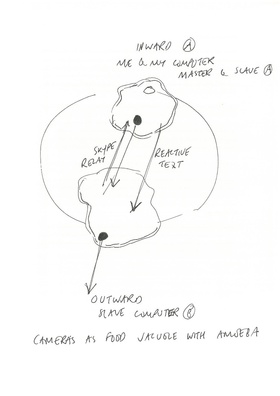 INWARD Ⓐ
ME & MY COMPUTER
MASTER & SLAVE Ⓐ
SKYPE
RELAY
REACTIVE
TEXT
OUTWARD
SLAVE COMPUTER Ⓑ
CAMERAS AS FOOD VACUOLE WITH AMOEBA